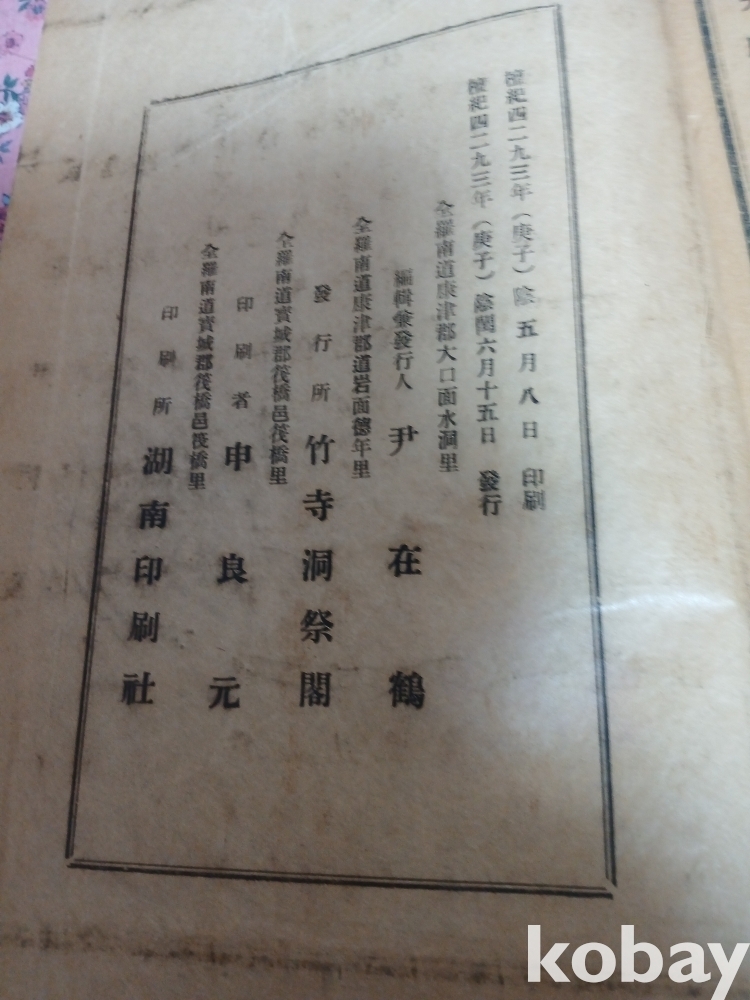 檀紀四二九三年(庚子)陰五月八日 印刷
檀紀四二九三年(庚子)陰閏六月十五日 發行
全羅南道康津郡大口面水洞里
編輯兼發行人 尹在鶴
全羅南道康津郡道岩面德年里
發行所 竹寺洞祭閣
全羅南道寶城郡筏橋邑筏橋里
印刷者 申良元
全羅南道寶城郡筏橋邑筏橋里
印刷所 湖南印刷社
kobay